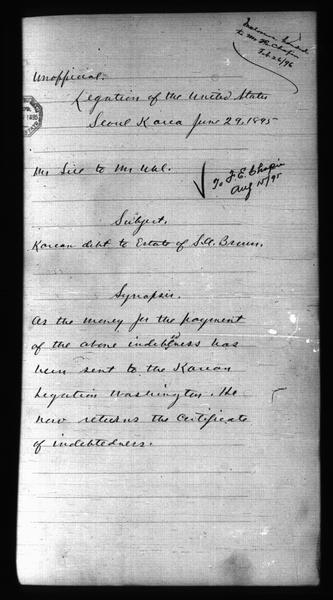 to Mr. R. Chapin
Feb 26/96
Unofficial.
Legation of the United States
Seoul Korea June 29, 1895
Mr Sill to Mr Uhl.
To J. E. Chapin
Aug 15/95
Subject.
Korean debt to Estate of S.A. Brown.
Synopsis.
As the money for the payment
of the above indebtness has
been sent to the Korean
Legation Washington. He
now returns the Certificate
of indebtedness.